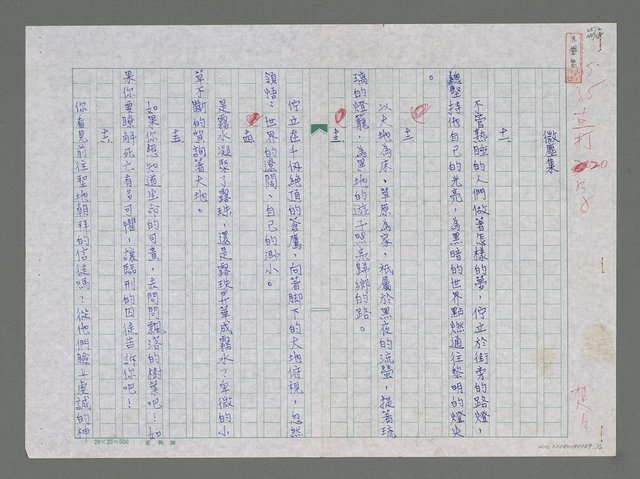 微塵集
十一
不管熟睡的人們做著怎樣的夢，佇立於街旁的路燈，
總堅持他自己的光亮，為黑暗的世界點燃通往黎明的燈火
。
十二
以大地為床，草原為家，祇屬於黑夜的流螢，提著琉
璃的燈籠，為異地的遊子照亮歸鄉的路。
十三
佇立在千仞絕頂的蒼鷹，向著腳下的大地俯視，忽然
領悟：世界的遼闊，自己的渺小。
十四
是霧水凝聚成露珠，還是露珠昇華成霧水？卑微的小
草不斷的質詢著大地。
十五
如果你想知道生命的可貴，去問問飄落的樹葉吧！如
果你要瞭解死亡有多可懼，讓臨刑的囚徒告訴你吧！
十六
你看見前往聖地朝拜的信徒嗎？從他們臉上虔誠的神
20×25=500